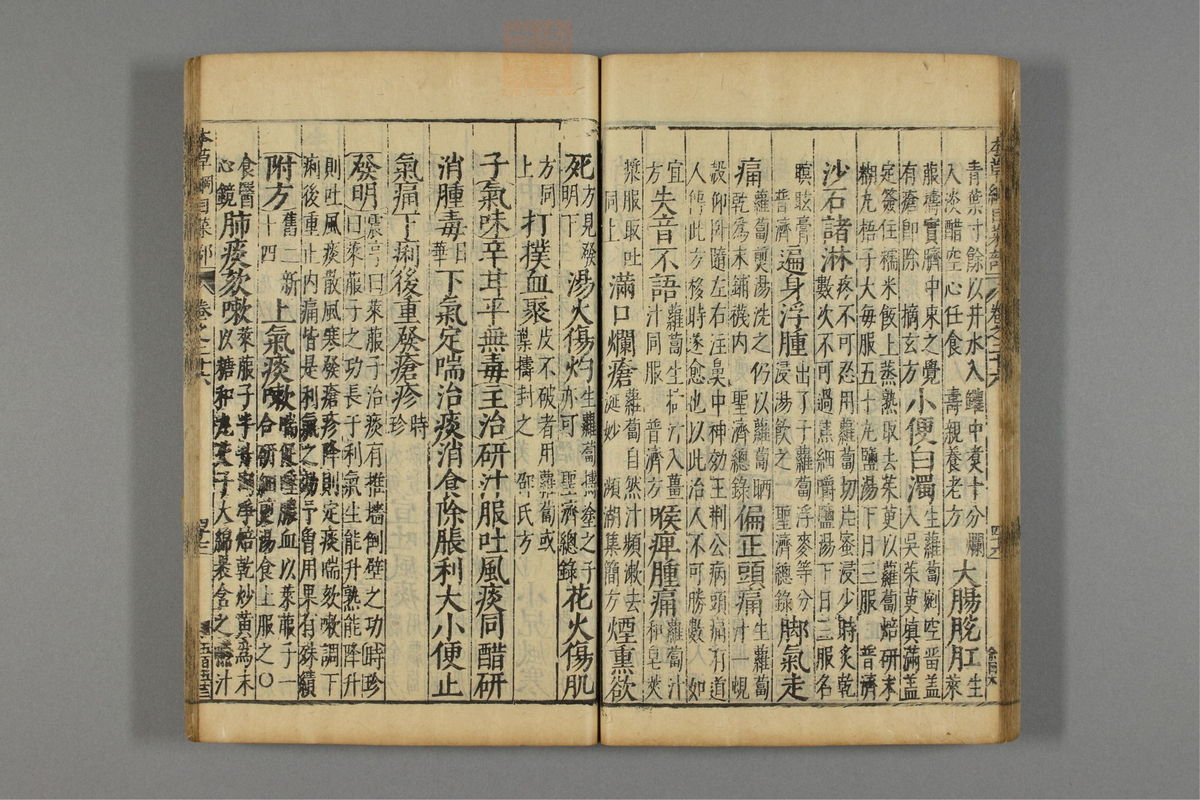 本草綱目菜部 卷之二十六
青葉寸餘以井水入罐中煮十分爛入淡醋空心任食 壽親養老方 大腸脫肛 生萊
服擣實臍中束之覺有瘡即除 摘玄方 小便白濁 生蘿蔔剜空留蓋入吳茱萸填滿蓋
定簽住糯米飯上蒸熟取去茱萸以蘿蔔焙研末糊丸梧子大每服五十丸鹽湯下日三服 普濟
沙石諸淋 疼不可忍用蘿蔔切片蜜浸少時炙乾數次不可過焦細嚼鹽湯下日三服名
瞑眩膏 普濟 遍身浮腫 出了子蘿蔔浮麥等分浸湯飲之 聖濟總錄 脚氣走
痛 蘿蔔煎湯洗之仍以蘿蔔晒乾為末鋪襪內 聖濟總錄 偏正頭痛 生蘿蔔汁一蜆
殼仰卧隨左右注鼻中神効王荆公病頭痛有道人傳此方移時遂愈也以此治人不可勝數 如
宜方 失音不語 蘿蔔生擣汁入薑汁同服 普濟方 喉痺腫痛 蘿蔔汁和皂莢
漿服取吐 同上 滿口爛瘡 蘿蔔自然汁頻漱去涎妙 瀕湖集簡方 煙熏欲
死 方見發明下 湯火傷灼 生蘿蔔擣塗之子亦可 聖濟總錄 花火傷肌
方同上 打撲血聚 皮不破者用蘿蔔或葉擣封之 邵氏方
子氣味辛甘平無毒主治研汁服吐風痰同醋研
消腫毒 日華 下氣定喘治痰消食除脹利大小便止
氣痛下痢後重發瘡疹 時珍
發明 震亨曰萊菔子治痰有推墻倒壁之功 時珍曰萊菔子之功長于利氣生能升熟能降升
則吐風痰散風寒發瘡疹降則定痰喘欬嗽調下痢後重止內痛皆是利氣之效予曾用果有殊績
附方 舊二新十四 上氣痰嗽 喘促唾膿血以萊菔子一合研細煎湯食上服之〇
食醫心鏡 肺痰欬嗽 萊菔子半升淘淨焙乾炒黃為末以糖和丸芡子大綿裹含之嚥汁
本草綱目菜部 卷之二十六